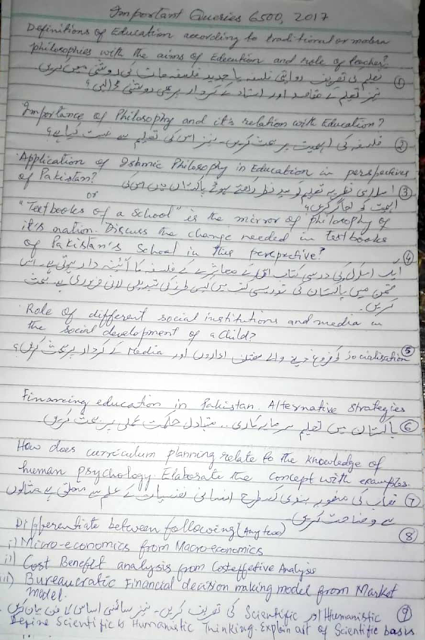 Important Queries 6500, 2017
Definitions of Education according to traditional or modern
philosophies with the aims of Education and role of teacher?
تعلیم کی تعریف روایتی فلسفہ یا جدید فلسفہ حیات کی روشنی میں کریں ①
نیز تعلیم کے مقاصد اور استاد کے کردار پر بھی روشنی ڈالیں؟
Importance of Philosophy and it's relation with Education?
② فلسفہ کی اہمیت پر بحث کریں۔ نیز اس کی تعلیم سے
Application of Islamic Philosophy in Education in perspective
of Pakistan?
③ اسلامی نظریہ تعلیم کو مد نظر رکھتے ہوئے پاکستان میں اس کی
اہمیت کو
or
"Textbooks of a School" is the mirror of philosophy of
it's nation. Discuss the change needed in Textbooks
of Pakistan's School in this perspective?
④ ایک سکول کی درسی کتاب اس کے معاشرے کے فلسفہ کا آئینہ دار ہوتی ہے۔ اس
ضمن میں پاکستان کی درسی کتب میں کس طرز کی تبدیلیاں لانا ضروری ہے بحث
کریں۔
Role of different social institutions and media in
the social development of a child?
⑤ Socialization کو فروغ دینے والے مختلف اداروں اور Media کے کردار پر بحث کریں؟
Financing education in Pakistan. Alternative strategies
⑥ پاکستان میں تعلیم سرمایہ کاری۔ متبادل حکمت عملی پر بحث کریں
How does curriculum planning relate to the knowledge of
human psychology Elaborate the concept with examples.
⑦ نصاب کی منصوبہ بندی کس طرح انسانی نفسیات کے علم سے متعلق ہے مثالوں
سے وضاحت کریں۔
Differentiate between following (Any two) ⑧
i) Micro-economics from Macro-economics
ii) Cost Benefit analysis from Cost effective Analysis
iii) Bureaucratic Financial decision making model from Market
model.
⑨ Scientific اور Humanistic کی تعریف کریں۔ نیز سائنسی اساس
Define Scientific & Humanistic Thinking. Explain of Scientific bases